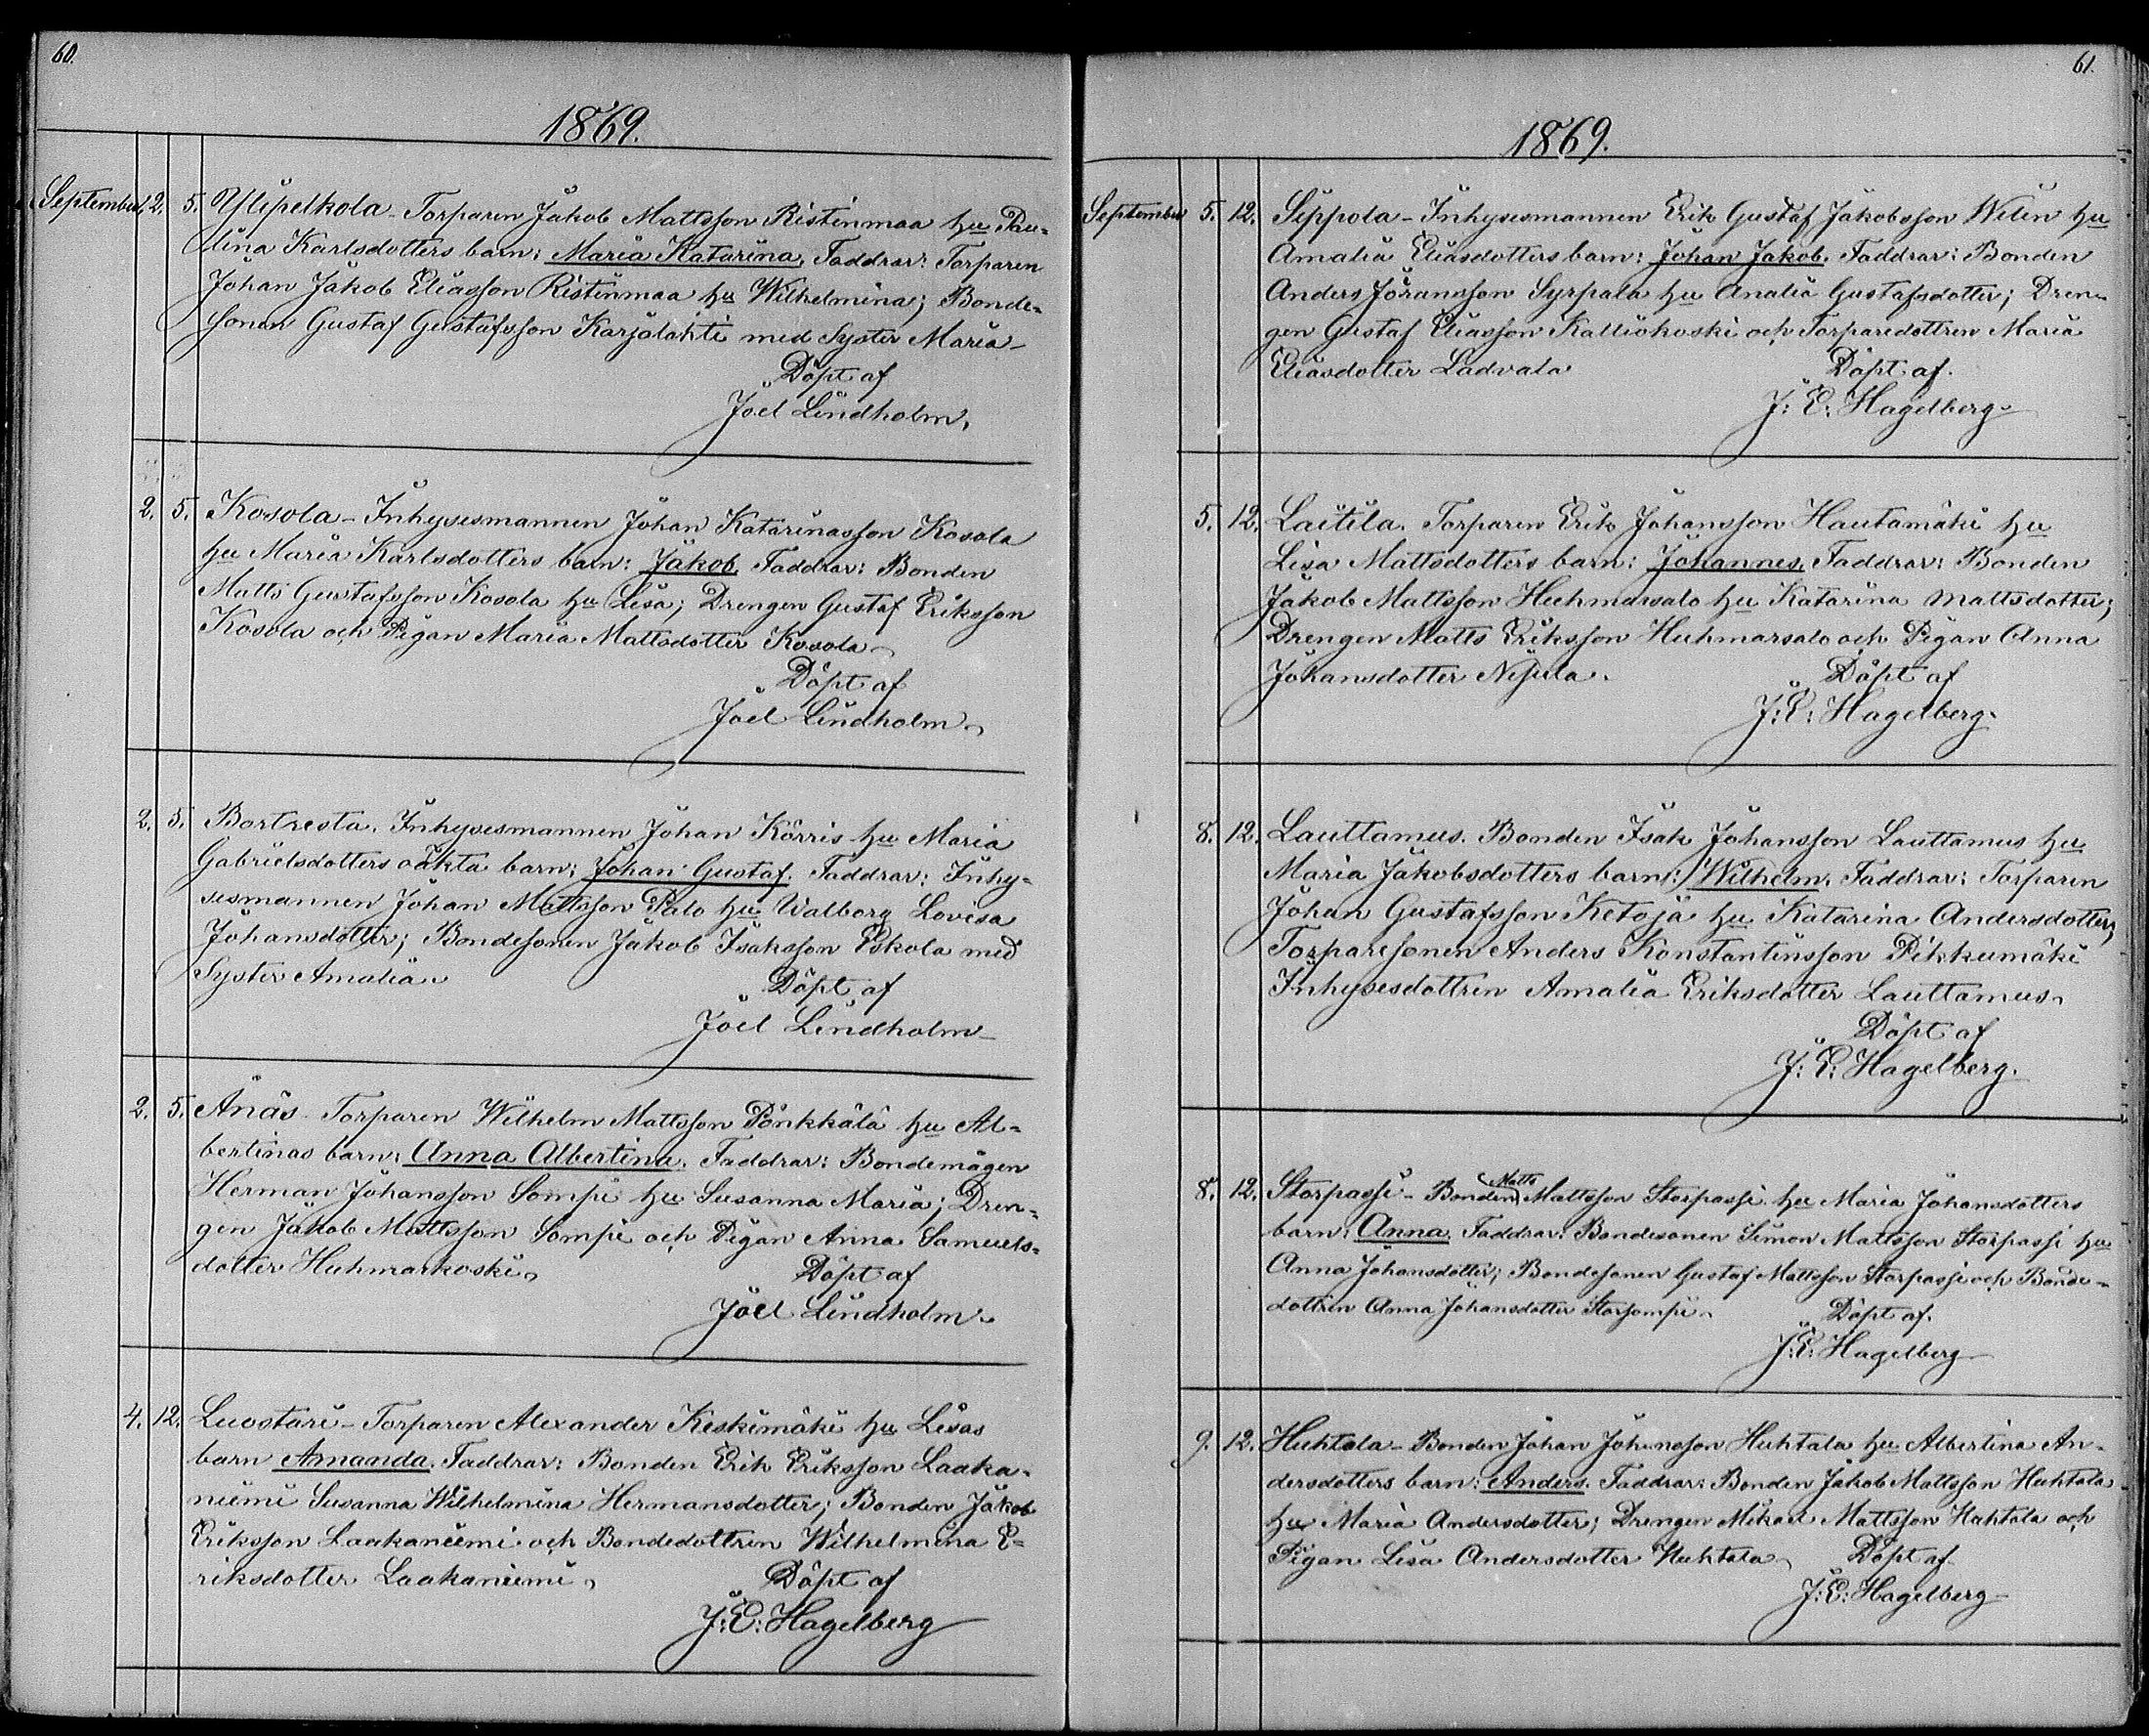 60.
1869.
September 2. 5. Ylipelkola - Torparen Jakob Mattsson Ristinmaa hu Pau-
lina Karlsdotters barn: Maria Katarina. Faddrar: Torparen
Johan Jakob Eliasson Ristinmaa hu Wilhelmina; Bonde-
sonen Gustaf Gustafsson Karjalahti med Syster Maria -
Döpt af
Joel Lindholm.
2. 5. Kosola - Inhysesmannen Johan Katarinasson Kosola
hu Maria Karlsdotters barn: Jakob. Faddrar: Bonden
Matts Gustafsson Kosola hu Lisa; Drengen Gustaf Eriksson
Kosola och Pigan Maria Mattsdotter Kosola
Döpt af
Joel Lindholm
2. 5. Bortresta. Inhysesmannen Johan Körris hu Maria
Gabrielsdotters oäkta barn: Johan Gustaf. Faddrar: Inhy-
sesmannen Johan Mattsson Palo hu Walborg Lovisa
Johansdotter; Bondesonen Jakob Isaksson Eskola med
Syster Amalia.
Döpt af
Joel Lindholm -
2. 5. Ånäs - Torparen Wilhelm Mattsson Pönkkälä hu Al-
bertinas barn: Anna Albertina. Faddrar: Bondemågen
Herman Johansson Sompi hu Susanna Maria; Dren-
gen Jakob Mattsson Sompi och Pigan Anna Samuels-
dotter Huhmarkoski
Döpt af
Joel Lindholm
4. 12. Luostari - Torparen Alexander Keskimäki hu Lisas
barn Amanda. Faddrar: Bonden Erik Eriksson Laaka-
niemi Susanna Wilhelmina Hermansdotter; Bonden Jakob
Eriksson Laakaniemi och Bondedottren Wilhelmina E-
riksdotter Laakaniemi
Döpt af
J: E: Hagelberg
61.
1869.
September 5. 12. Seppola - Inhysesmannen Erik Gustaf Jakobsson Welin hu
Amalia Eliasdotters barn: Johan Jakob. Faddrar: Bonden
Anders Jöransson Syrpala hu Analia Gustafsdotter; Dren-
gen Gustaf Eliasson Kalliokoski och Torparedottren Maria
Eliasdotter Ladvala
Döpt af.
J: E: Hagelberg
5. 12. Laitila. Torparen Erik Johansson Hautamäki hu
Lisa Mattsdotters barn: Johannes. Faddrar: Bonden
Jakob Mattsson Huhmarsalo hu Katarina Mattsdotter;
Drengen Matts Eriksson Huhmarsalo och Pigan Anna
Johansdotter Nisula.
Döpt af
J: E: Hagelberg.
8. 12. Lauttamus. Bonden Isak Johansson Lauttamus hu
Maria Jakobsdotters barn: Wilhelm. Faddrar: Torparen
Johan Gustafsson Ketoja hu Katarina Andersdotter;
Torparesonen Anders Konstantinsson Pikkumäki
Inhysesdottren Amalia Eriksdotter Lauttamus
Döpt af
J: E: Hagelberg.
8. 12. Storpassi - Bonden Matts Mattsson Storpassi hu Maria Johansdotters
barn: Anna. Faddrar: Bondesonen Simon Mattsson Storpassi hu
Anna Johansdotter; Bondesonen Gustaf Mattsson Storpassi och Bonde-
dottren Anna Johansdotter Storsompi
Döpt af.
J: E: Hagelberg
9. 12. Huhtala - Bonden Johan Johansson Huhtala hu Albertina An-
dersdotters barn: Anders. Faddrar: Bonden Jakob Mattsson Huhtala
hu Maria Andersdotter; Drengen Mikael Mattsson Huhtala och
Pigan Lisa Andersdotter Huhtala
Döpt af
J: E: Hagelberg